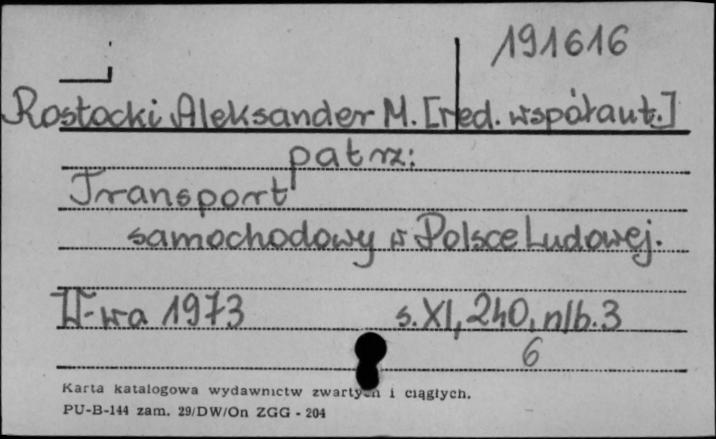 191616
Rostocki Aleksander M. [red. współaut.]
patrz:
Transport
samochodowy w Polsce Ludowej.
W-wa 1973 s. XI, 240, nlb. 3
6
Karta katalogowa wydawnictw zwartych i ciągłych.
PU-B-144 zam. 29/DW/On ZGG - 204